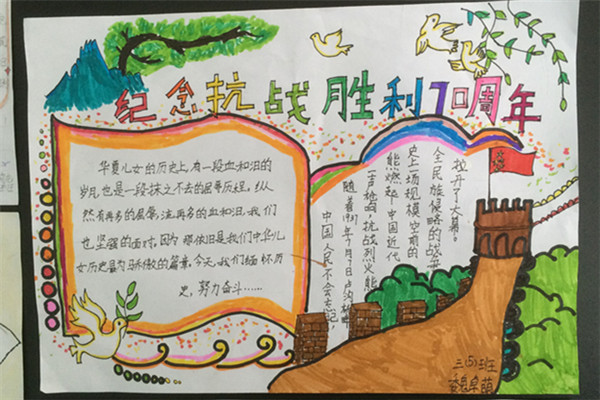 纪念抗战胜利70周年
华夏儿女的历史上,有一段血和泪的
岁月,也是一段抹之不去的屈辱历程,纵
然有再多的屈辱,流再多的血和泪,我们
也坚强的面对。因为那依旧是我们中华儿
女历史最为骄傲的篇章,今天,我们缅怀历
史,努力奋斗……
中国人民不会忘记,
随着1937年7月7日卢沟桥畔
一声枪响,抗战烈火熊
能燃起中国近代
史上一场规模空前的
全民族侵略的战争
拉开了大幕。
三(5)班